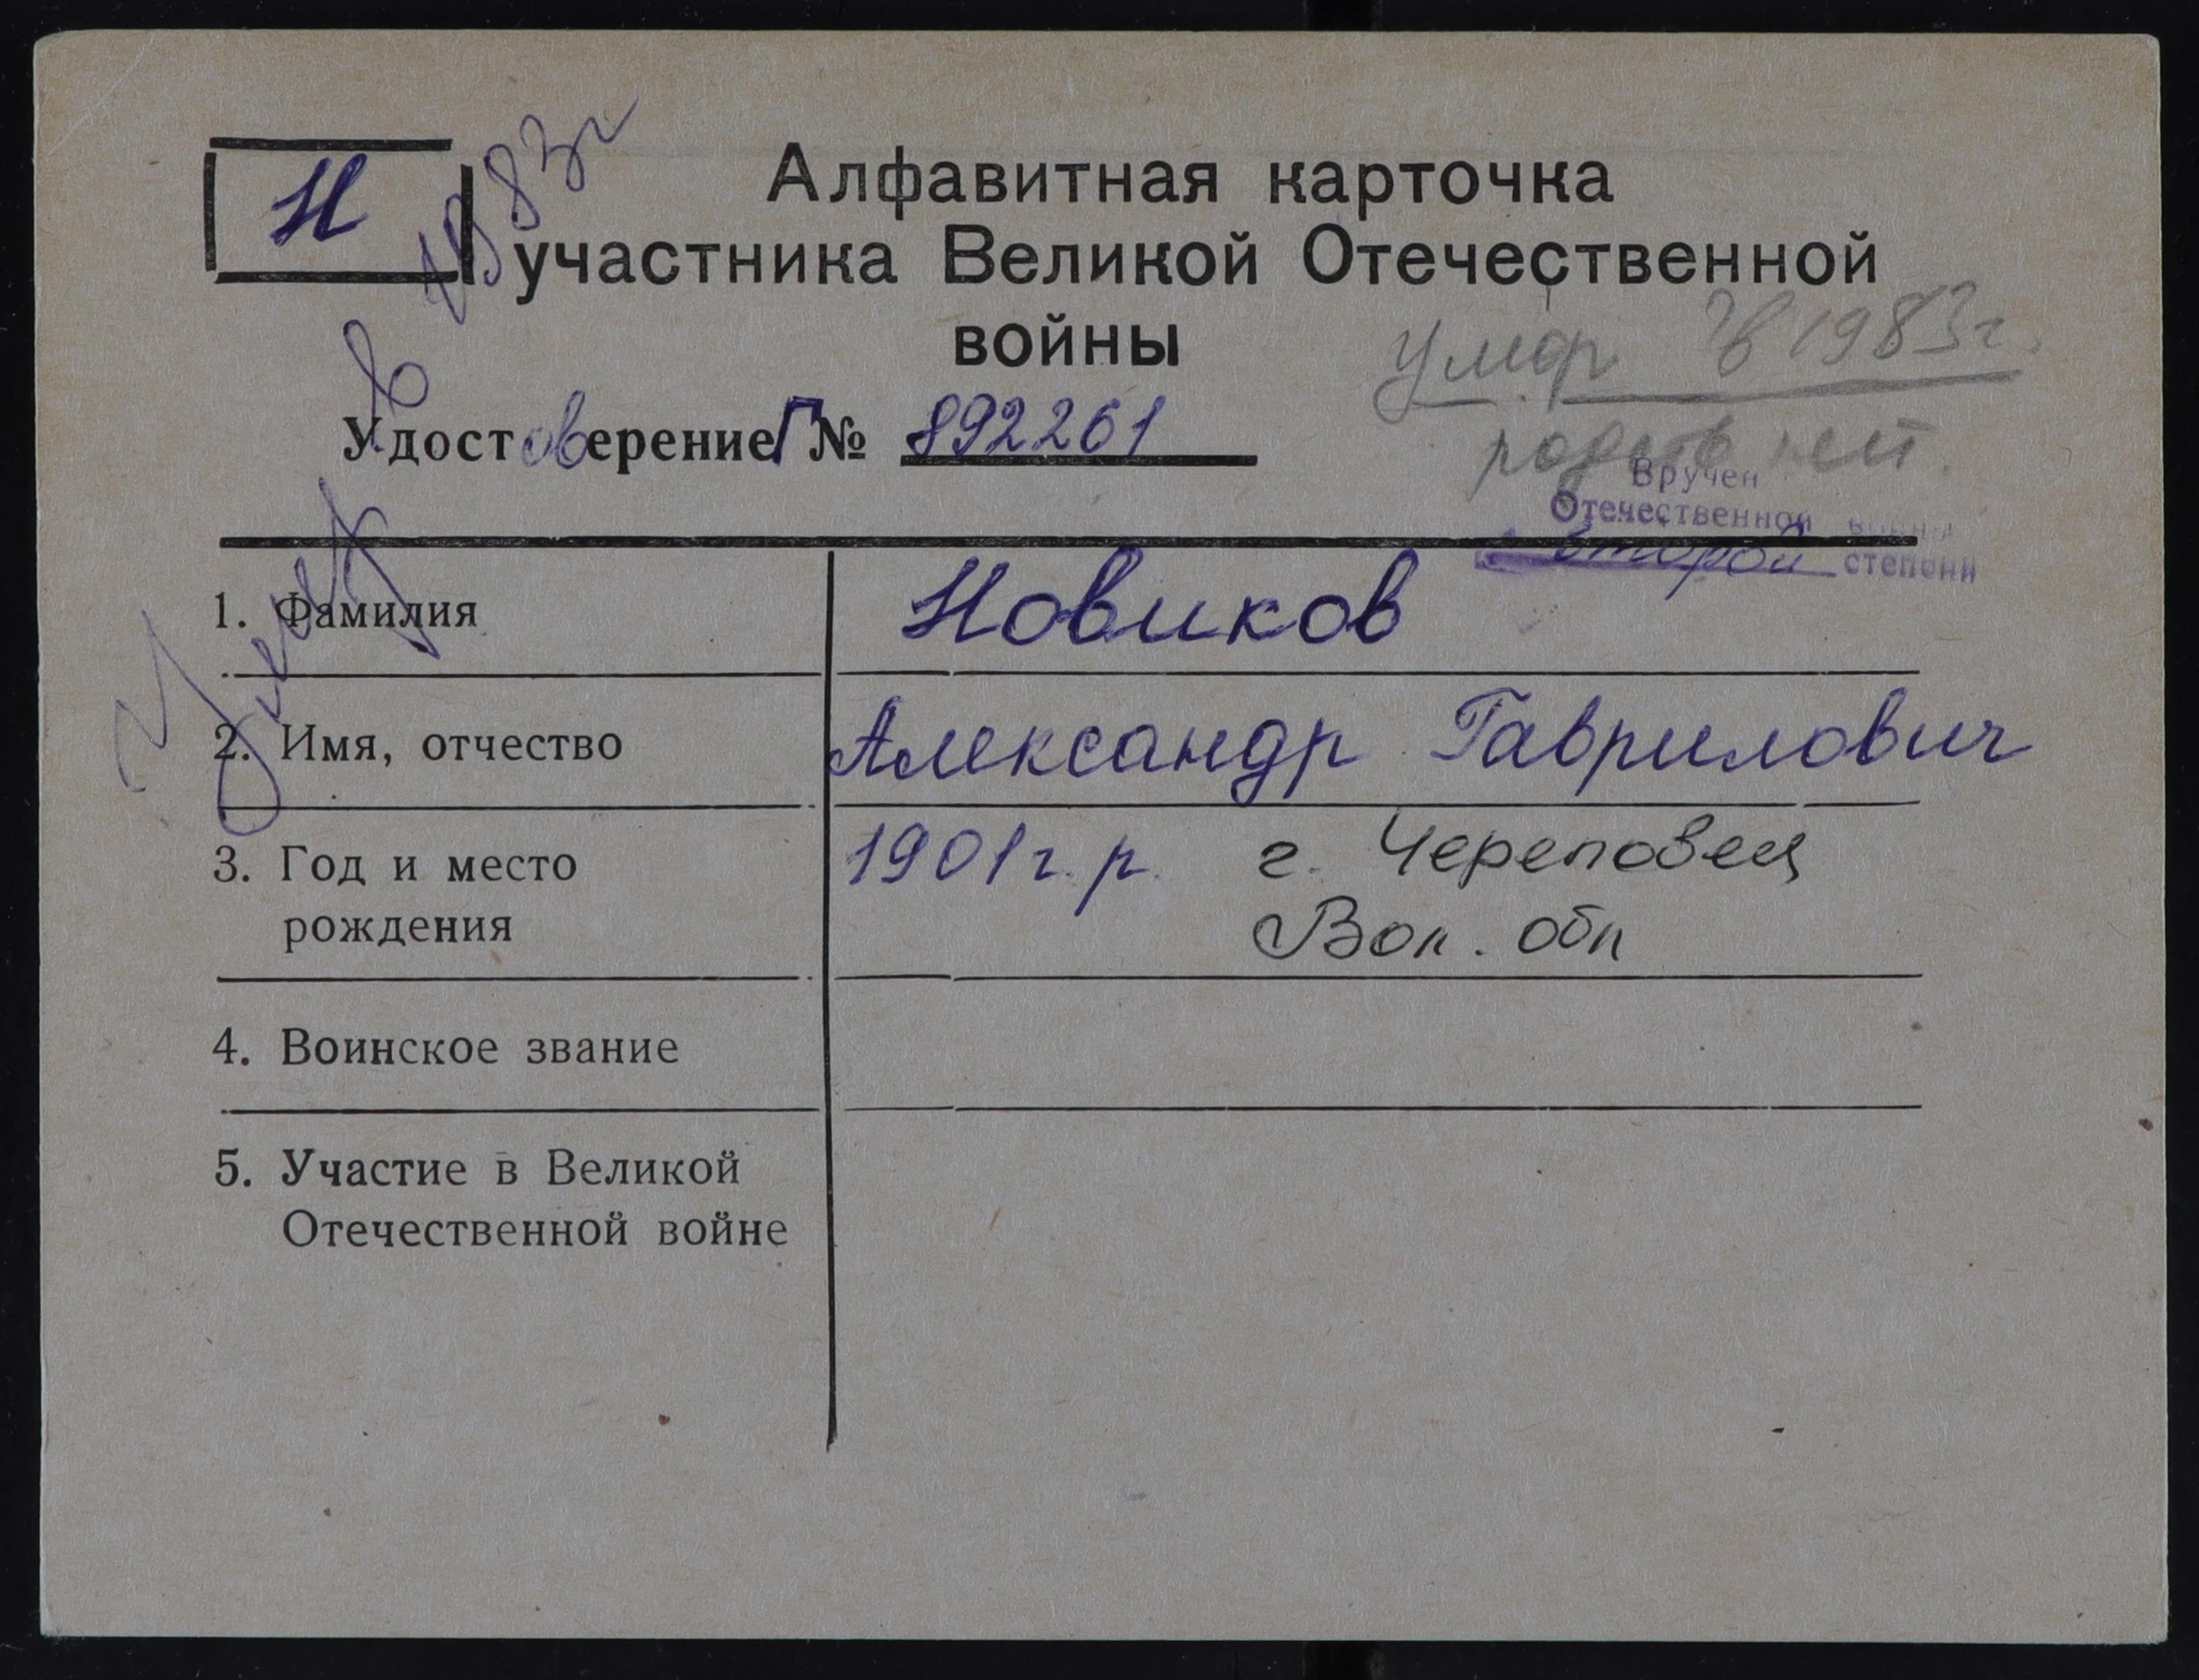 Н
Алфавитная карточка
участника Великой Отечественной
войны
умер в 1983г.
Удостоверение Г № 892261
родств нет.
Вручен
Отечественной войны
второй степени
Умер в 1983г
1. Фамилия Новиков
2. Имя, отчество Александр Гаврилович
3. Год и место 1901 г.р. г. Череповец
рождения Вол. обл
4. Воинское звание
5. Участие в Великой
Отечественной войне